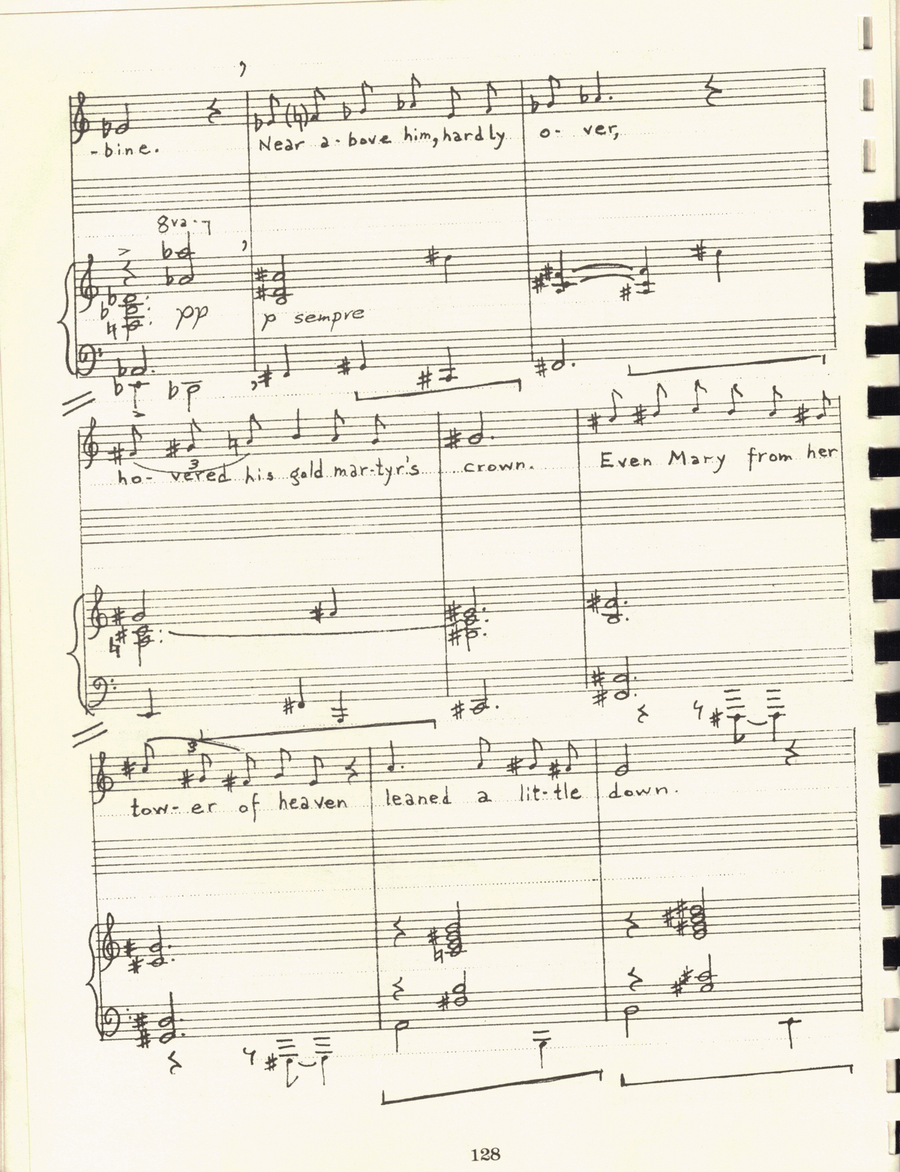 -bine. Near a-bove him, hardly o-ver,
8va-
pp p sempre
3
ho-vered his gold mar-tyr's crown. Even Mary from her
3
tow-er of heaven leaned a lit-tle down.
128